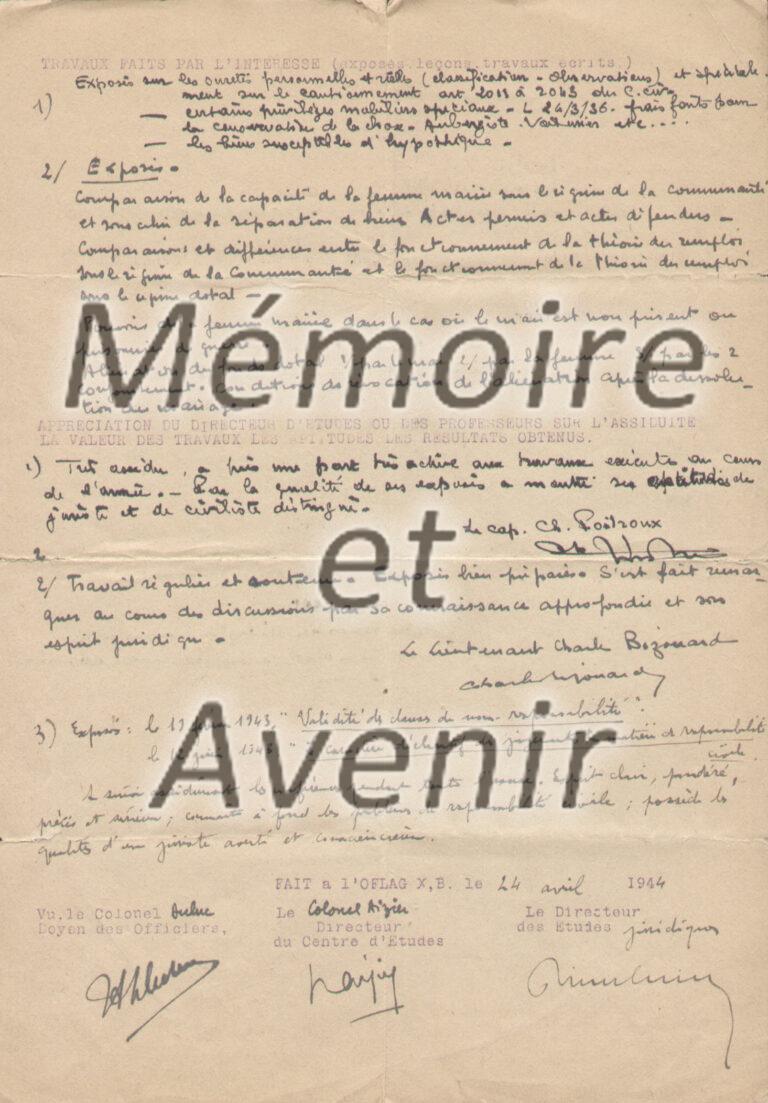 TRAVAUX FAITS PAR L'INTERESSE (exposés, leçons, travaux écrits.)
1) Exposés sur les suretés personnelles et réelles (classification - Observations) et spéciale-
ment sur le cautionnement art. 2011 à 2043 du C. civ.
— certains privilèges mobiliers spéciaux - L 24/3/36. frais faits pour
la conservation de la chose - Aubergiste. Voiturier etc....
— les biens susceptibles d'hypothèque -
2/ Exposés -
Comparaison de la capacité de la femme mariée sous le régime de la communauté
et sous celui de la séparation de biens Actes permis et actes défendus -
Comparaisons et différences entre le fonctionnement de la théorie des remplois
sous le régime de la Communauté et le fonctionnement de la théorie des remplois
sous le régime dotal -
Pouvoirs de la femme mariée dans le cas où le mari est non présent ou
prisonnier de guerre
Aliénation du fonds dotal 1/ par le mari 2/ par la femme 3/ par les 2
conjointement. Conditions de révocation de l'aliénation après la dissolu-
tion du mariage
APPRECIATION DU DIRECTEUR D'ETUDES OU DES PROFESSEURS SUR L'ASSIDUITE
LA VALEUR DES TRAVAUX LES APTITUDES LES RESULTATS OBTENUS.
1) Très assidu, a pris une part très active aux travaux exécutés au cours
de l'année. - Par la qualité de ses exposés a montré ses aptitudes de
juriste et de civiliste distingué.
Le cap. Ch. Poitroux
2
2/ Travail régulier et soutenu. Exposés bien préparés. S'est fait remar-
quer au cours des discussions par sa connaissance approfondie et son
esprit juridique.
Le Lieutenant Charle Bizouard
Charle Bizouard
3) Exposés: le 1943 "Validité des clauses de non-responsabilité".
le juin 1943 " matière de responsabilité
civile.
A suivi assidument les conférences pendant toute l'année. Esprit clair, pondéré,
précis et sérieux; connaît à fond les problèmes de responsabilité civile; possède les
qualités d'un juriste averti et consciencieux.
FAIT a l'OFLAG X,B. le 24 avril 1944
Vu.le Colonel
Doyen des Officiers,
Le Colonel
Directeur
du Centre d'Etudes
Le Directeur
des Etudes juridiques
Mémoire
et
Avenir